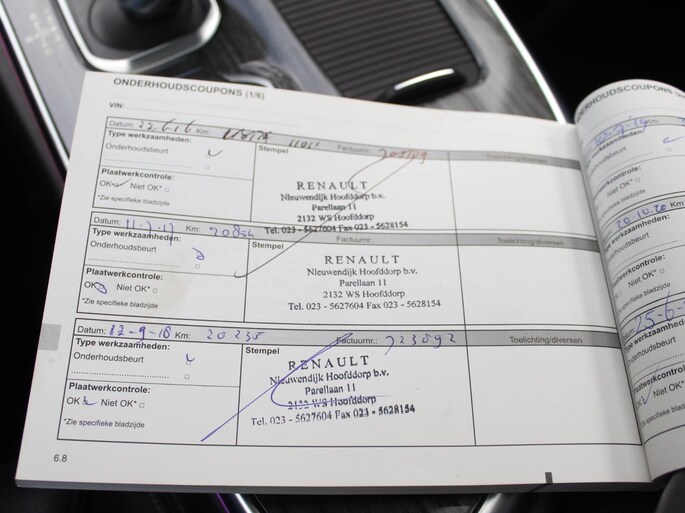 ONDERHOUDSCOUPONS (1/6)
VIN:
Datum: 22-6-16 Km: Factuurnr.: Toelichting/diversen
Type werkzaamheden: Stempel
Onderhoudsbeurt
Plaatwerkcontrole:
OK Niet OK*
*Zie specifieke bladzijde
RENAULT
Nieuwendijk Hoofddorp b.v.
Parellaan 11
2132 WS Hoofddorp
Tel. 023 - 5627604 Fax 023 - 5628154
Datum: 11-7-17 Km: 20854 Factuurnr.: Toelichting/diversen
Type werkzaamheden: Stempel
Onderhoudsbeurt
Plaatwerkcontrole:
OK Niet OK*
*Zie specifieke bladzijde
RENAULT
Nieuwendijk Hoofddorp b.v.
Parellaan 11
2132 WS Hoofddorp
Tel. 023 - 5627604 Fax 023 - 5628154
Datum: -9-18 Km: 20235 Factuurnr.: 723592 Toelichting/diversen
Type werkzaamheden: Stempel
Onderhoudsbeurt
Plaatwerkcontrole:
OK Niet OK*
*Zie specifieke bladzijde
RENAULT
Nieuwendijk Hoofddorp b.v.
Parellaan 11
2132 WS Hoofddorp
Tel. 023 - 5627604 Fax 023 - 5628154
6.8
werkzaamheden:
Onderhoudsbeurt
Plaatwerkcontrole:
OK Niet OK*
*Zie specifieke bladzijde
20-10-20 Km:
Type werkzaamheden:
Onderhoudsbeurt
Plaatwerkcontrole:
OK Niet OK*
*Zie specifieke bladzijde
25-6-
Type werkzaamheden
Onderhoudsbeurt
Plaatwerkcontrole:
OK Niet OK*
*Zie specifieke bladzijde